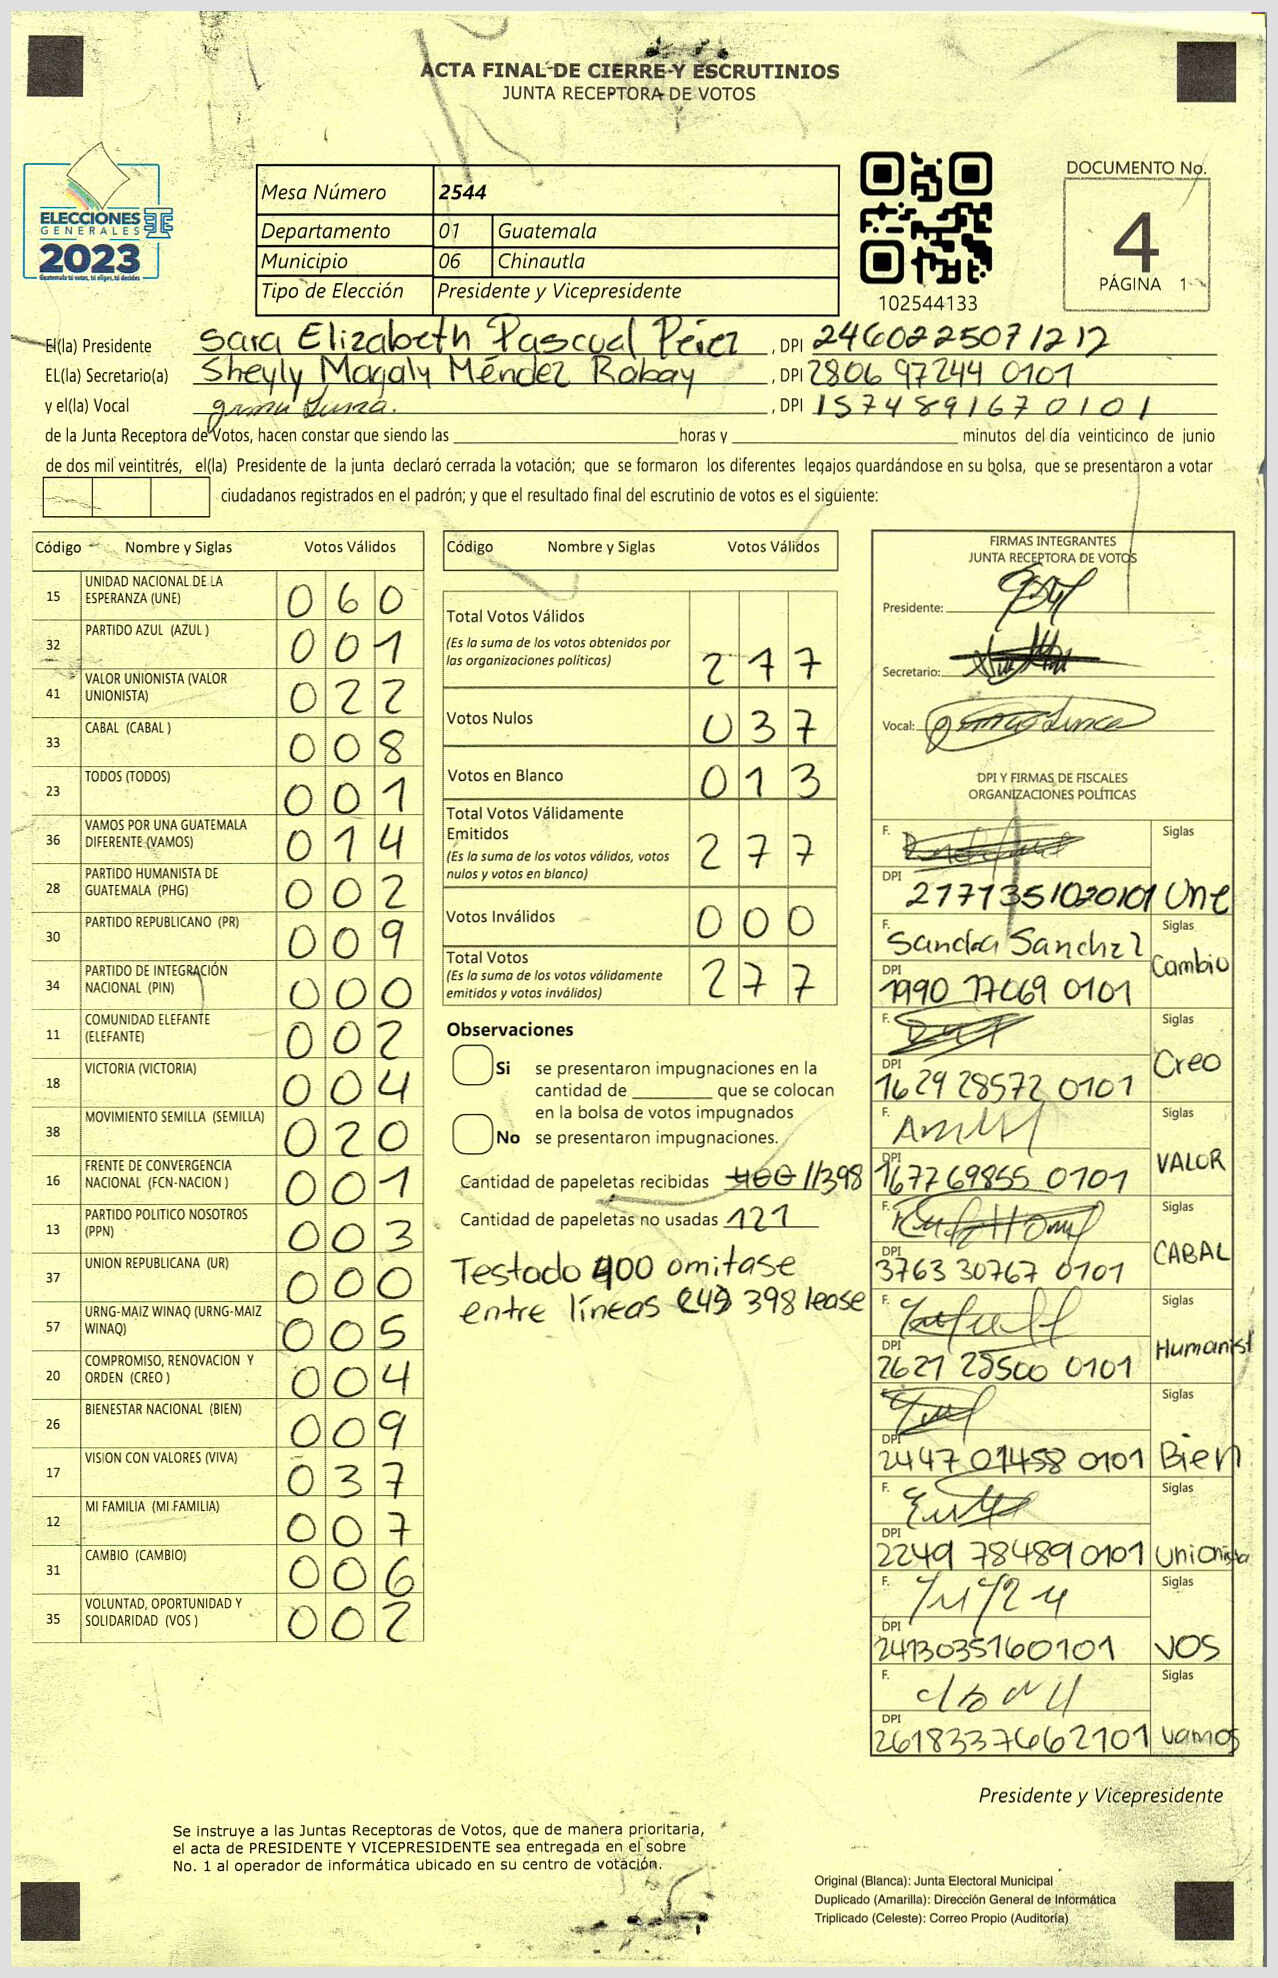 ACTA FINAL DE CIERRE Y ESCRUTINIOS
JUNTA RECEPTORA DE VOTOS
ELECCIONES
GENERALES
2023
Guatemala tú votas, tú eliges, tú decides
Mesa Número 2544
Departamento 01 Guatemala
Municipio 06 Chinautla
Tipo de Elección Presidente y Vicepresidente
102544133
DOCUMENTO No.
4
PÁGINA 1
El(la) Presidente Sara Elizabeth Pascual Pérez , DPI 2460225071212
EL(la) Secretario(a) Sheyly Magaly Méndez Robay , DPI 2806 97244 0101
y el(la) Vocal , DPI 1574891670101
de la Junta Receptora de Votos, hacen constar que siendo las horas y minutos del día veinticinco de junio
de dos mil veintitrés, el(la) Presidente de la junta declaró cerrada la votación; que se formaron los diferentes legajos guardándose en su bolsa, que se presentaron a votar
ciudadanos registrados en el padrón; y que el resultado final del escrutinio de votos es el siguiente:
Código Nombre y Siglas Votos Válidos
15 UNIDAD NACIONAL DE LA ESPERANZA (UNE) 060
32 PARTIDO AZUL (AZUL ) 001
41 VALOR UNIONISTA (VALOR UNIONISTA) 022
33 CABAL (CABAL ) 008
23 TODOS (TODOS) 001
36 VAMOS POR UNA GUATEMALA DIFERENTE (VAMOS) 014
28 PARTIDO HUMANISTA DE GUATEMALA (PHG) 002
30 PARTIDO REPUBLICANO (PR) 009
34 PARTIDO DE INTEGRACIÓN NACIONAL (PIN) 000
11 COMUNIDAD ELEFANTE (ELEFANTE) 002
18 VICTORIA (VICTORIA) 004
38 MOVIMIENTO SEMILLA (SEMILLA) 020
16 FRENTE DE CONVERGENCIA NACIONAL (FCN-NACION ) 001
13 PARTIDO POLITICO NOSOTROS (PPN) 003
37 UNION REPUBLICANA (UR) 000
57 URNG-MAIZ WINAQ (URNG-MAIZ WINAQ) 005
20 COMPROMISO, RENOVACION Y ORDEN (CREO ) 004
26 BIENESTAR NACIONAL (BIEN) 009
17 VISION CON VALORES (VIVA) 037
12 MI FAMILIA (MI FAMILIA) 007
31 CAMBIO (CAMBIO) 006
35 VOLUNTAD, OPORTUNIDAD Y SOLIDARIDAD (VOS ) 002
Código Nombre y Siglas Votos Válidos
Total Votos Válidos
(Es la suma de los votos obtenidos por
las organizaciones políticas) 277
Votos Nulos 037
Votos en Blanco 013
Total Votos Válidamente
Emitidos
(Es la suma de los votos válidos, votos
nulos y votos en blanco) 277
Votos Inválidos 000
Total Votos
(Es la suma de los votos válidamente
emitidos y votos inválidos) 277
Observaciones
Si se presentaron impugnaciones en la
cantidad de que se colocan
en la bolsa de votos impugnados
No se presentaron impugnaciones.
Cantidad de papeletas recibidas 400 //398
Cantidad de papeletas no usadas 121
Testado 400 omitase
entre líneas 398 lease
FIRMAS INTEGRANTES
JUNTA RECEPTORA DE VOTOS
Presidente:
Secretario:
Vocal:
DPI Y FIRMAS DE FISCALES
ORGANIZACIONES POLÍTICAS
F. Siglas
DPI 2771351020101 Une
F. Sandra Sanchez Siglas
DPI 1990 17069 0101 Cambio
F. Siglas
DPI 1629 28572 0101 Creo
F. Siglas
DPI 1677 69855 0101 VALOR
F. Siglas
DPI 3763 30767 0101 CABAL
F. Siglas
DPI 2621 25500 0101 Humanist
F. Siglas
DPI 2447 01458 0101 Bien
F. Siglas
DPI 2249 78489 0101 Unionista
F. Siglas
DPI 2413035160101 VOS
F. Siglas
DPI 2618337662101 Vamos
Presidente y Vicepresidente
Se instruye a las Juntas Receptoras de Votos, que de manera prioritaria,
el acta de PRESIDENTE Y VICEPRESIDENTE sea entregada en el sobre
No. 1 al operador de informática ubicado en su centro de votación.
Original (Blanca): Junta Electoral Municipal
Duplicado (Amarilla): Dirección General de Informática
Triplicado (Celeste): Correo Propio (Auditoría)